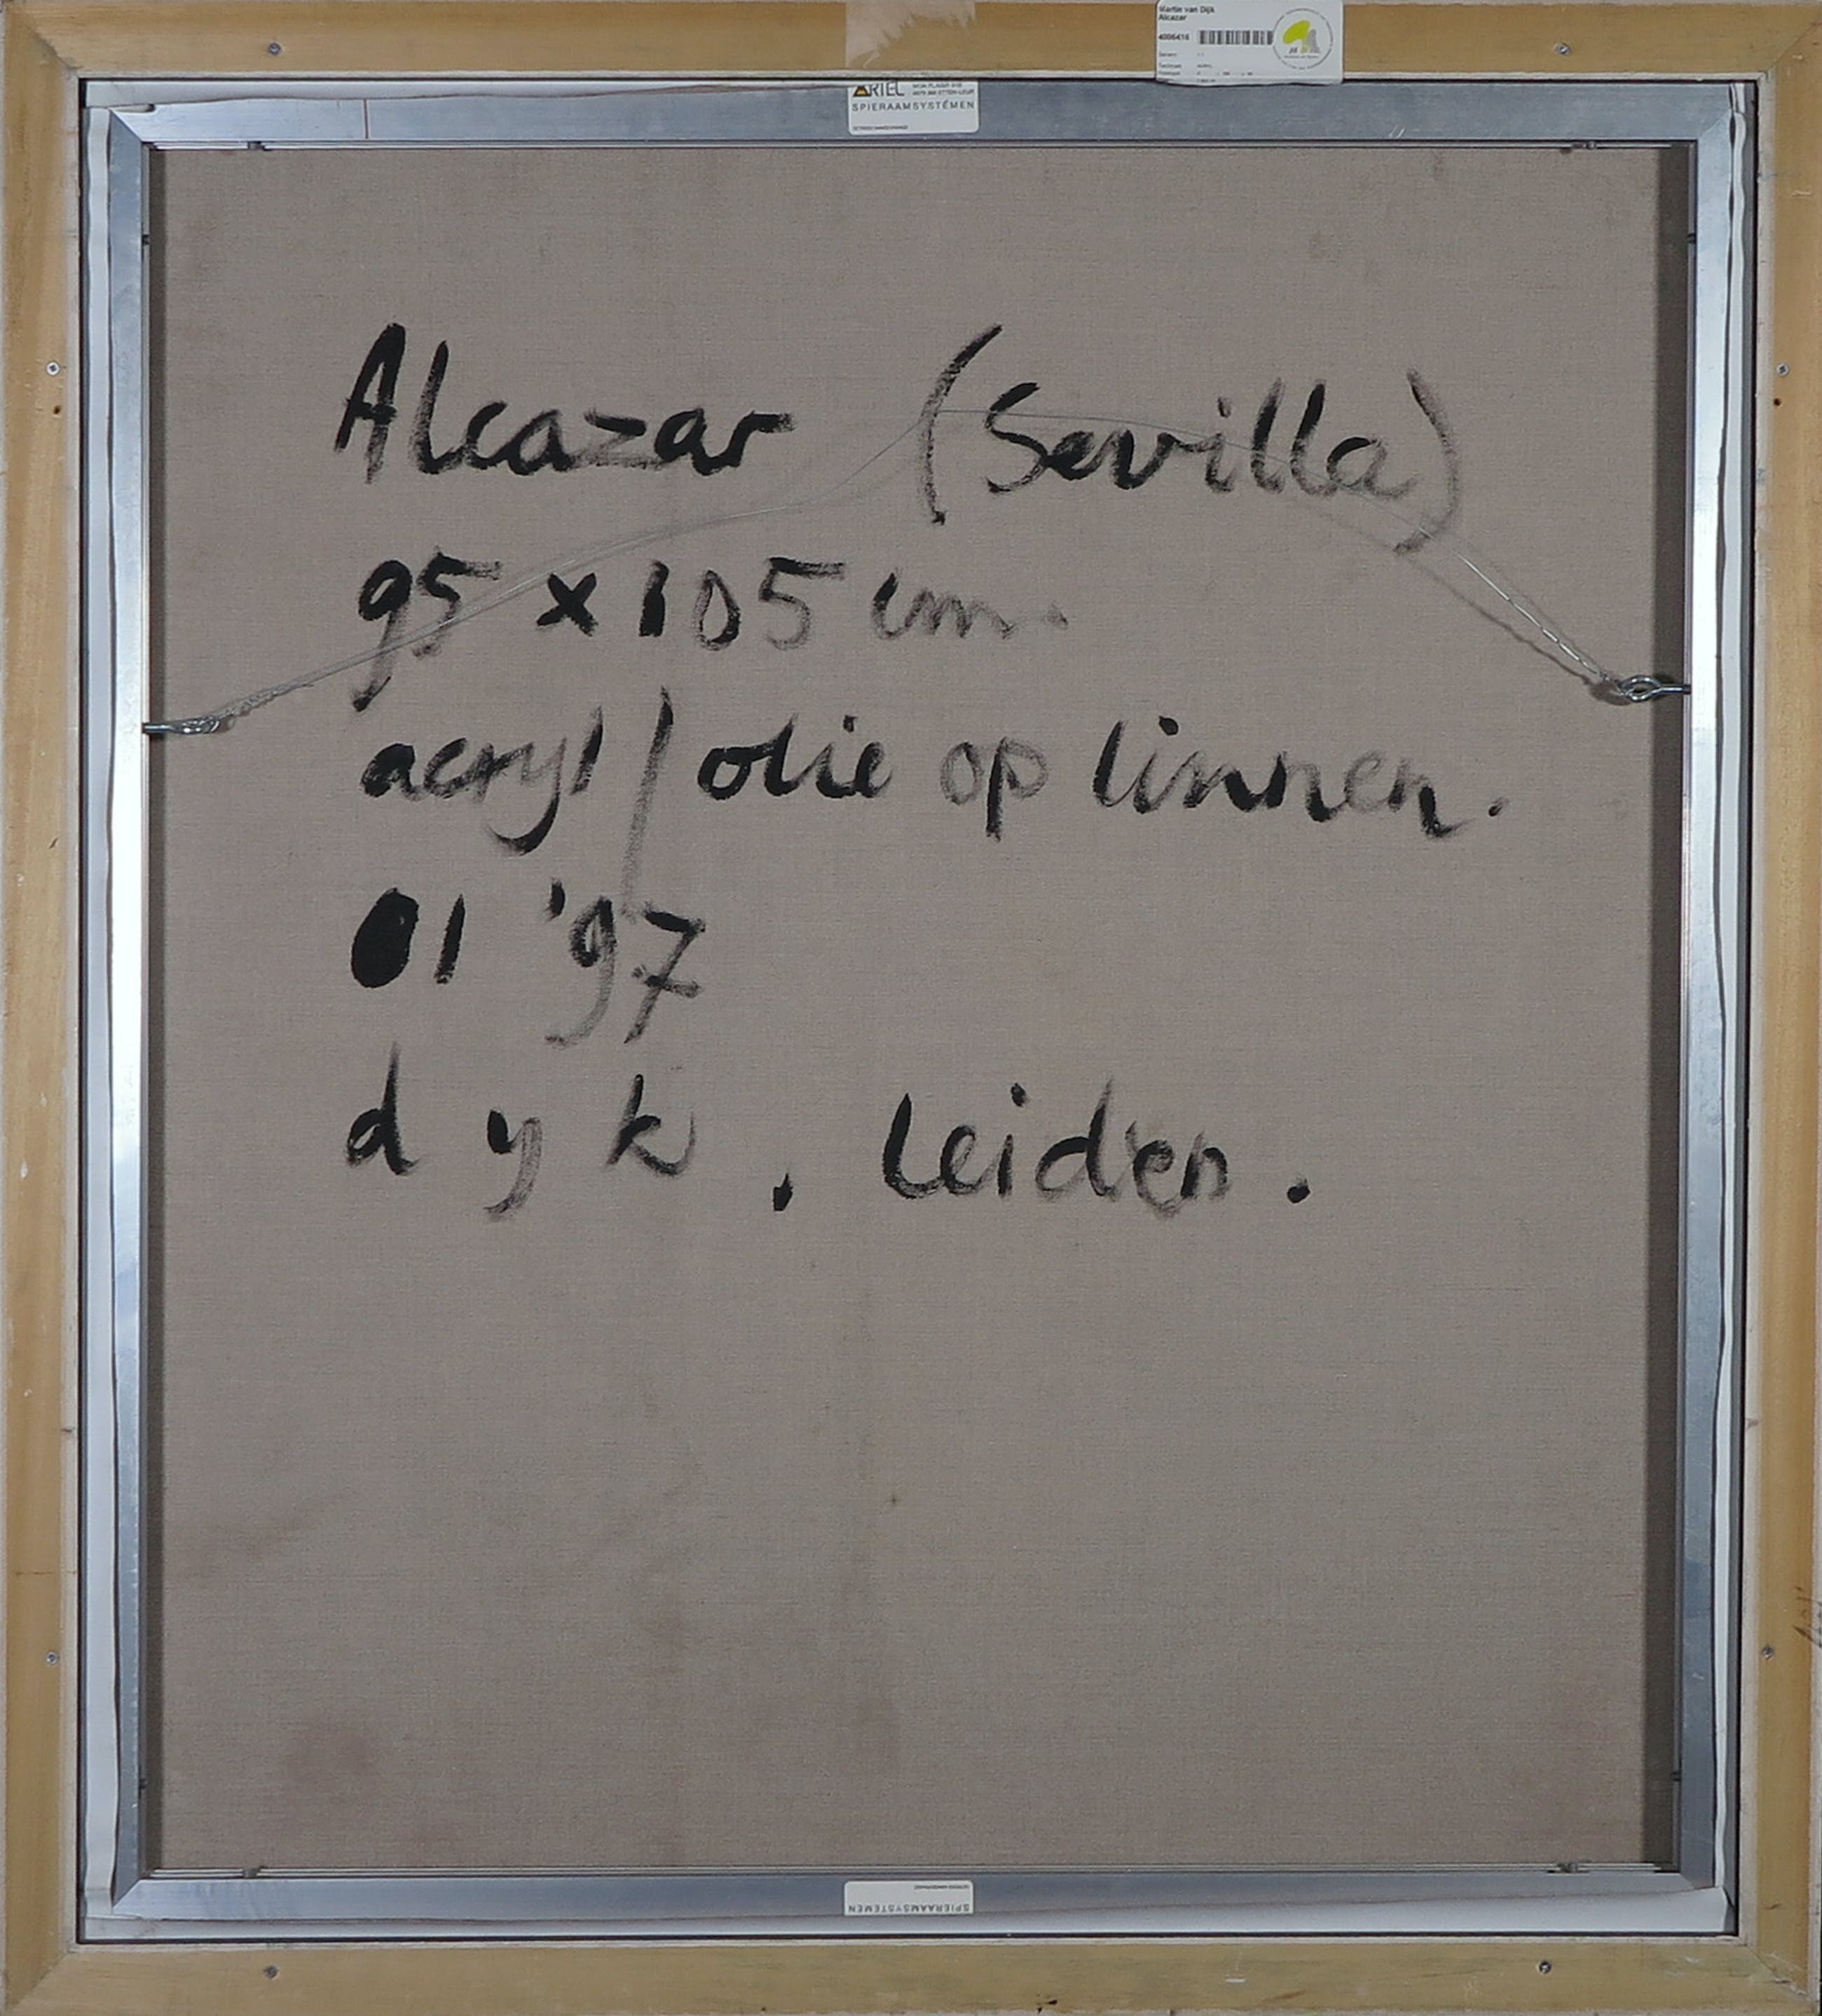 Martin van Dijk
Alcazar
4006416
ARTEL
SPIERAAMSYSTEMEN
Alcazar (Sevilla)
95 x 105 cm.
acryl / olie op linnen.
01 '97
dyk. Leiden.
SPIERAAMSYSTEMEN